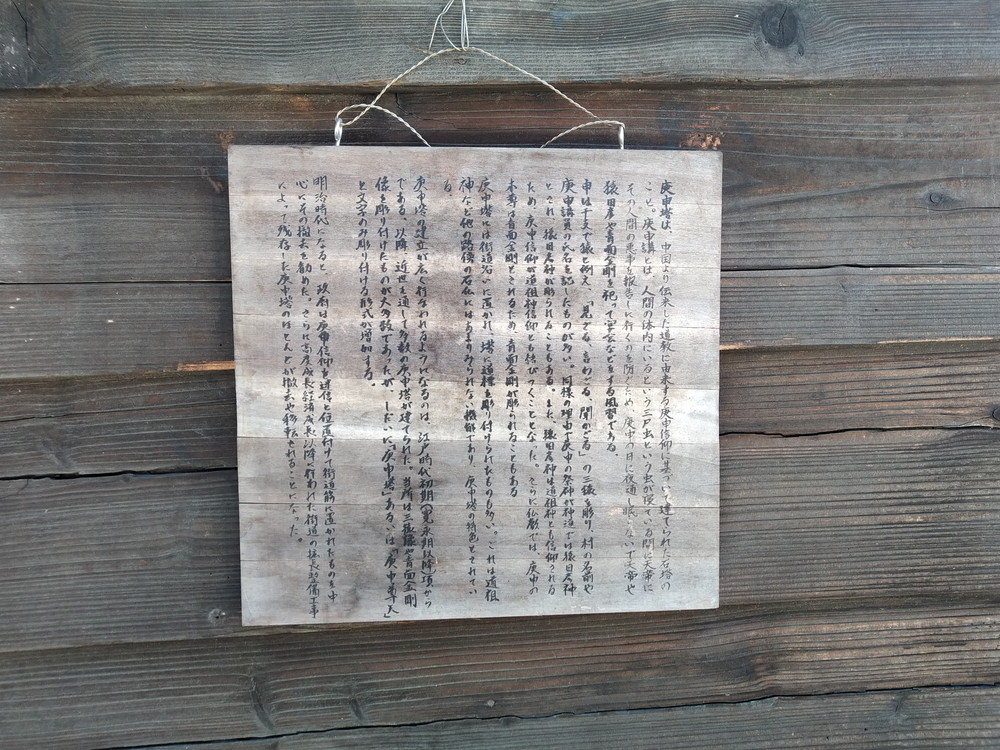 庚申塔は、中国より伝来した道教に由来する庚申信仰に基づいて建てられた石塔の
こと。庚申講とは、人間の体内にいるという三尸虫という虫が寝ている間に天帝に
その人間の悪事を報告しに行くのを防ぐため、庚申の日に夜通し眠らないで天帝や
猿田彦や青面金剛を祀って宴会などをする風習である。
申は干支で猿に例え、「見ざる、言わざる、聞かざる」の三猿を彫り、村の名前や
庚申講員の氏名を記したものが多い。同様の理由で庚申の祭神が神道では猿田彦神
とされ、猿田彦神が彫られることもある。また、猿田彦神は道祖神とも信仰される
ため、庚申信仰が道祖神信仰とも結びつくこととなった。さらに仏教では、庚申の
本尊は青面金剛とされるため、青面金剛が彫られることもある
庚申塔には街道沿いに置かれ、塔に道標を彫り付けられたものも多い。これは道祖
神など他の路傍の石仏にはあまりみられない機能であり、庚申塔の特色とされてい
る。
庚申塔の建立が広く行なわれるようになるのは、江戸時代初期(寛永期以降)頃から
である。以降、近世を通して多数の庚申塔が建てられた。当所は三猿像や青面金剛
像を彫り付けたものが大多数であったが、しだいに「庚申塔」あるいは「庚申尊天」
と文字のみ彫り付ける形式が増加する。
明治時代になると、政府は庚申信仰を迷信と位置付けて街道筋に置かれたものを中
心にその撤去を勧めた。さらに高度成長経済成長以降に行われた街道の拡張整備工事
によって残存した庚申塔のほとんどが撤去や移転されることになった。